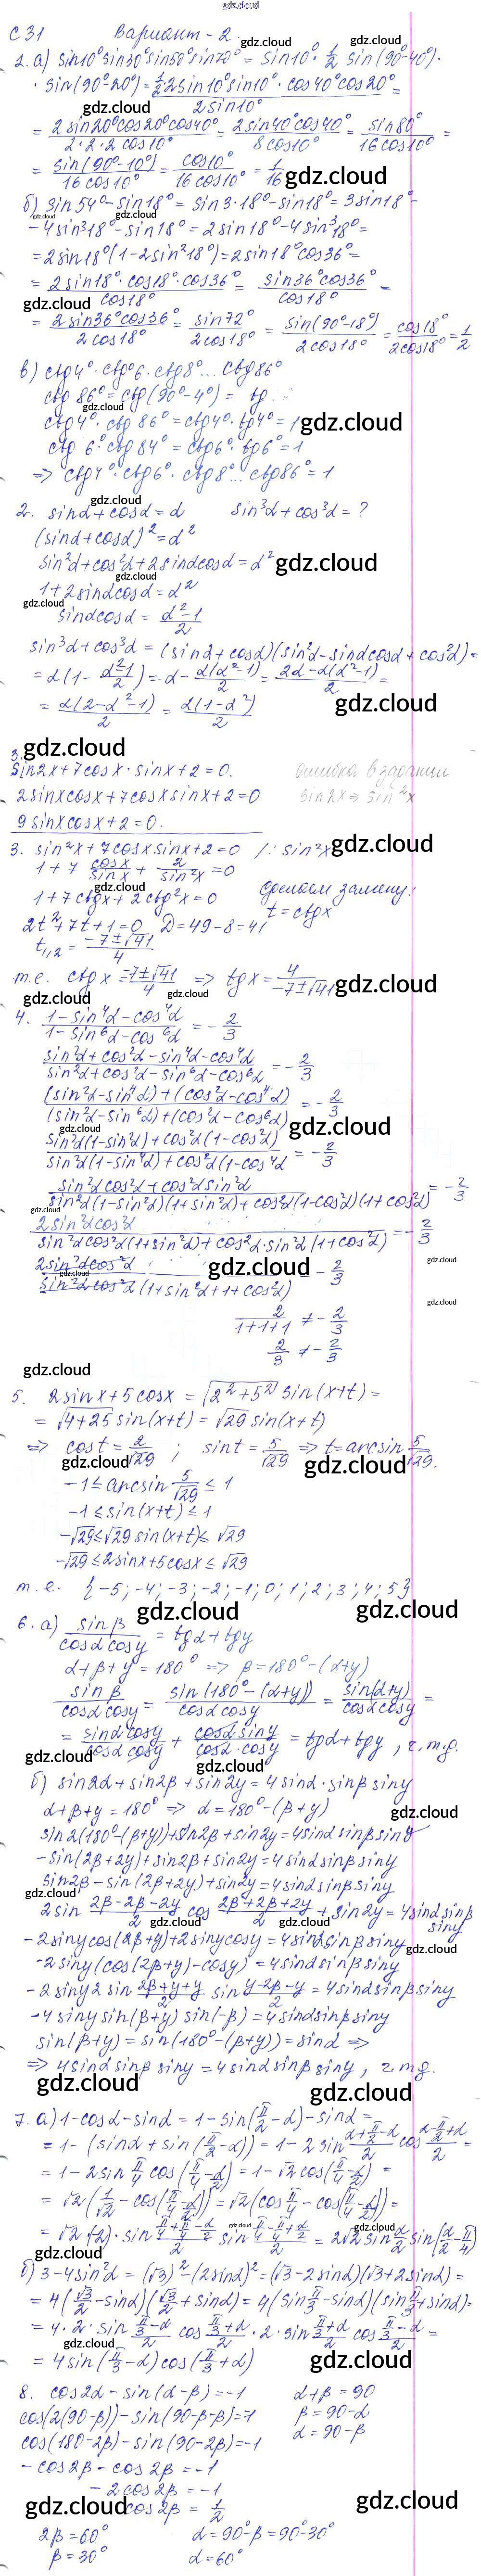 gdz.cloud
С 31 Вариант - 2.
2. а) sin10° sin30° sin50° sin70° = sin10° · 1/2 sin(90°-40°) ·
· sin(90°-20°) = 1/2 2sin10° sin10° · cos40° cos20° / 2sin10° =
gdz.cloud
= 2sin20°cos20°cos40° / 2·2·2 cos10° = 2sin40°cos40° / 8cos10° = sin80° / 16cos10° =
= sin(90°-10°) / 16cos10° = cos10° / 16cos10° = 1/16
gdz.cloud
б) sin54° - sin18° = sin3·18° - sin18° = 3sin18° -
gdz.cloud
- 4sin³18° - sin18° = 2sin18° - 4sin³18° =
= 2sin18°(1-2sin²18°) = 2sin18°cos36° =
= 2sin18°·cos18°·cos36° / cos18° = sin36°cos36° / cos18° =
gdz.cloud
= 2sin36°cos36° / 2cos18° = sin72° / 2cos18° = sin(90°-18°) / 2cos18° = cos18° / 2cos18° = 1/2
в) ctg4°·ctg°6·ctg8°... ctg86°
ctg86° = ctg(90°-4°) = tg
gdz.cloud
ctg4°·ctg86° = ctg4°·tg4° = 1
gdz.cloud
ctg6°·ctg84° = ctg6°·tg6° = 1
=> ctg4°·ctg6°·ctg8°... ctg86° = 1
gdz.cloud
2. sinα+cosα=α sin³α+cos³α=?
(sinα+cosα)²=α²
sin²α+cos²α+2sinαcosα=α²
gdz.cloud
gdz.cloud
1+2sinαcosα=α²
gdz.cloud
sinαcosα = α²-1 / 2
sin³α+cos³α = (sinα+cosα)(sin²α-sinαcosα+cos²α) =
= α(1 - α²-1 / 2) = α - α(α²-1) / 2 = 2α-α(α²-1) / 2 =
= α(2-α²-1) / 2 = α(1-α²) / 2
gdz.cloud
gdz.cloud
3.
sin2x+7cosx·sinx+2=0. ошибка в задании
2sinxcosx+7cosxsinx+2=0 sin2x => sin²x
9sinxcosx+2=0.
3. sin²x+7cosxsinx+2=0 /: sin²x
gdz.cloud
1+7 cosx / sinx + 2 / sin²x = 0
gdz.cloud
1+7ctgx+2ctg²x=0 сделаем замену:
2t²+7t+1=0 D=49-8=41 t=ctgx
t₁,₂ = -7±√41 / 4
т.е. ctgx = -7±√41 / 4 => tgx = 4 / -7±√41
gdz.cloud
gdz.cloud
gdz.cloud
4. 1-sin⁴α-cos⁴α / 1-sin⁶α-cos⁶α = -2/3
sin²α+cos²α-sin⁴α-cos⁴α / sin²α+cos²α-sin⁶α-cos⁶α = -2/3
gdz.cloud
(sin²α-sin⁴α)+(cos²α-cos⁴α) / (sin²α-sin⁶α)+(cos²α-cos⁶α) = -2/3
gdz.cloud
gdz.cloud
sin²α(1-sin²α)+cos²α(1-cos²α) / sin²α(1-sin⁴α)+cos²α(1-cos⁴α = -2/3
sin²αcos²α+cos²αsin²α / sin²α(1-sin²α)(1+sin²α)+cos²α(1-cos²α)(1+cos²α) = -2/3
gdz.cloud
2sin²αcos²α / sin²αcos²α(1+sin²α)+cos²α·sin²α(1+cos²α) = -2/3
gdz.cloud
2sin²αcos²α / sin²αcos²α(1+sin²α+1+cos²α) = -2/3
gdz.cloud
gdz.cloud
2 / 1+1+1 ≠ -2/3
gdz.cloud
2/3 ≠ -2/3
gdz.cloud
5. 2sinx+5cosx = √2²+5² sin(x+t) =
= √4+25 sin(x+t) = √29 sin(x+t)
=> cost = 2/√29 ; sint = 5/√29 => t=arcsin 5/√29.
gdz.cloud
gdz.cloud
-1 ≤ arcsin 5/√29 ≤ 1
-1 ≤ sin(x+t) ≤ 1
-√29 ≤ √29 sin(x+t) ≤ √29
-√29 ≤ 2sinx+5cosx ≤ √29
т.е. {-5; -4; -3; -2; -1; 0; 1; 2; 3; 4; 5}
gdz.cloud
gdz.cloud
6. а) sinβ / cosαcosγ = tgα+tgγ
α+β+γ=180° => β=180°-(α+γ)
sinβ / cosαcosγ = sin(180°-(α+γ)) / cosαcosγ = sin(α+γ) / cosαcosγ =
= sinαcosγ / cosαcosγ + cosαsinγ / cosα·cosγ = tgα+tgγ, ч.т.д.
gdz.cloud
gdz.cloud
б) sin2α+sin2β+sin2γ=4sinα·sinβsinγ
α+β+γ=180° => α=180°-(β+γ)
gdz.cloud
sin2(180°-(β+γ))+sin2β+sin2γ=4sinαsinβsinγ
-sin(2β+2γ)+sin2β+sin2γ=4sinαsinβsinγ
sin2β-sin(2β+2γ)+sin2γ=4sinαsinβsinγ
gdz.cloud
2sin 2β-2β-2γ / 2 cos 2β+2β+2γ / 2 + sin2γ=4sinαsinβ sinγ
gdz.cloud
gdz.cloud
-2sinγcos(2β+γ)+2sinγcosγ=4sinαsinβsinγ
gdz.cloud
-2sinγ(cos(2β+γ)-cosγ)=4sinαsinβsinγ
-2sinγ2sin 2β+γ+γ / 2 sin γ-2β-γ / 2 = 4sinαsinβsinγ
-4sinγsin(β+γ)sin(-β)=4sinαsinβsinγ
sin(β+γ)=sin(180°-(β+γ))=sinα =>
=> 4sinαsinβsinγ=4sinαsinβsinγ, ч.т.д.
gdz.cloud
gdz.cloud
7. а) 1-cosα-sinα = 1-sin(π/2-α)-sinα =
= 1-(sinα+sin(π/2-α)) = 1-2sin α+π/2-α / 2 cos α-π/2+α / 2 =
= 1-2sin π/4 cos(π/4-α/2) = 1-√2cos(π/4-α/2) =
= √2(1/√2-cos(π/4-α/2)) = √2(cos π/4-cos(π/4-α/2)) =
gdz.cloud
gdz.cloud
= √2(+2)·sin π/4+π/4-α/2 / 2 sin π/4-π/4+α/2 / 2 = 2√2sin α/2 sin(α/2-π/4)
gdz.cloud
б) 3-4sin²α = (√3)²-(2sinα)² = (√3-2sinα)(√3+2sinα) =
= 4(√3/2-sinα)(√3/2+sinα) = 4(sin π/3-sinα)(sin π/3+sinα) =
= 4·2·sin π/3-α / 2 cos π/3+α / 2 · 2·sin π/3+α / 2 cos π/3-α / 2 =
gdz.cloud
= 4sin(π/3-α)cos(π/3+α)
gdz.cloud
8. cos2α-sin(α-β)=-1 α+β=90
cos(2(90-β))-sin(90-β-β)=-1 β=90-α
cos(180-2β)-sin(90-2β)=-1 α=90-β
-cos2β-cos2β=-1
-2cos2β=-1
gdz.cloud
gdz.cloud
cos2β=1/2
2β=60° α=90°-β=90°-30°
β=30° α=60°